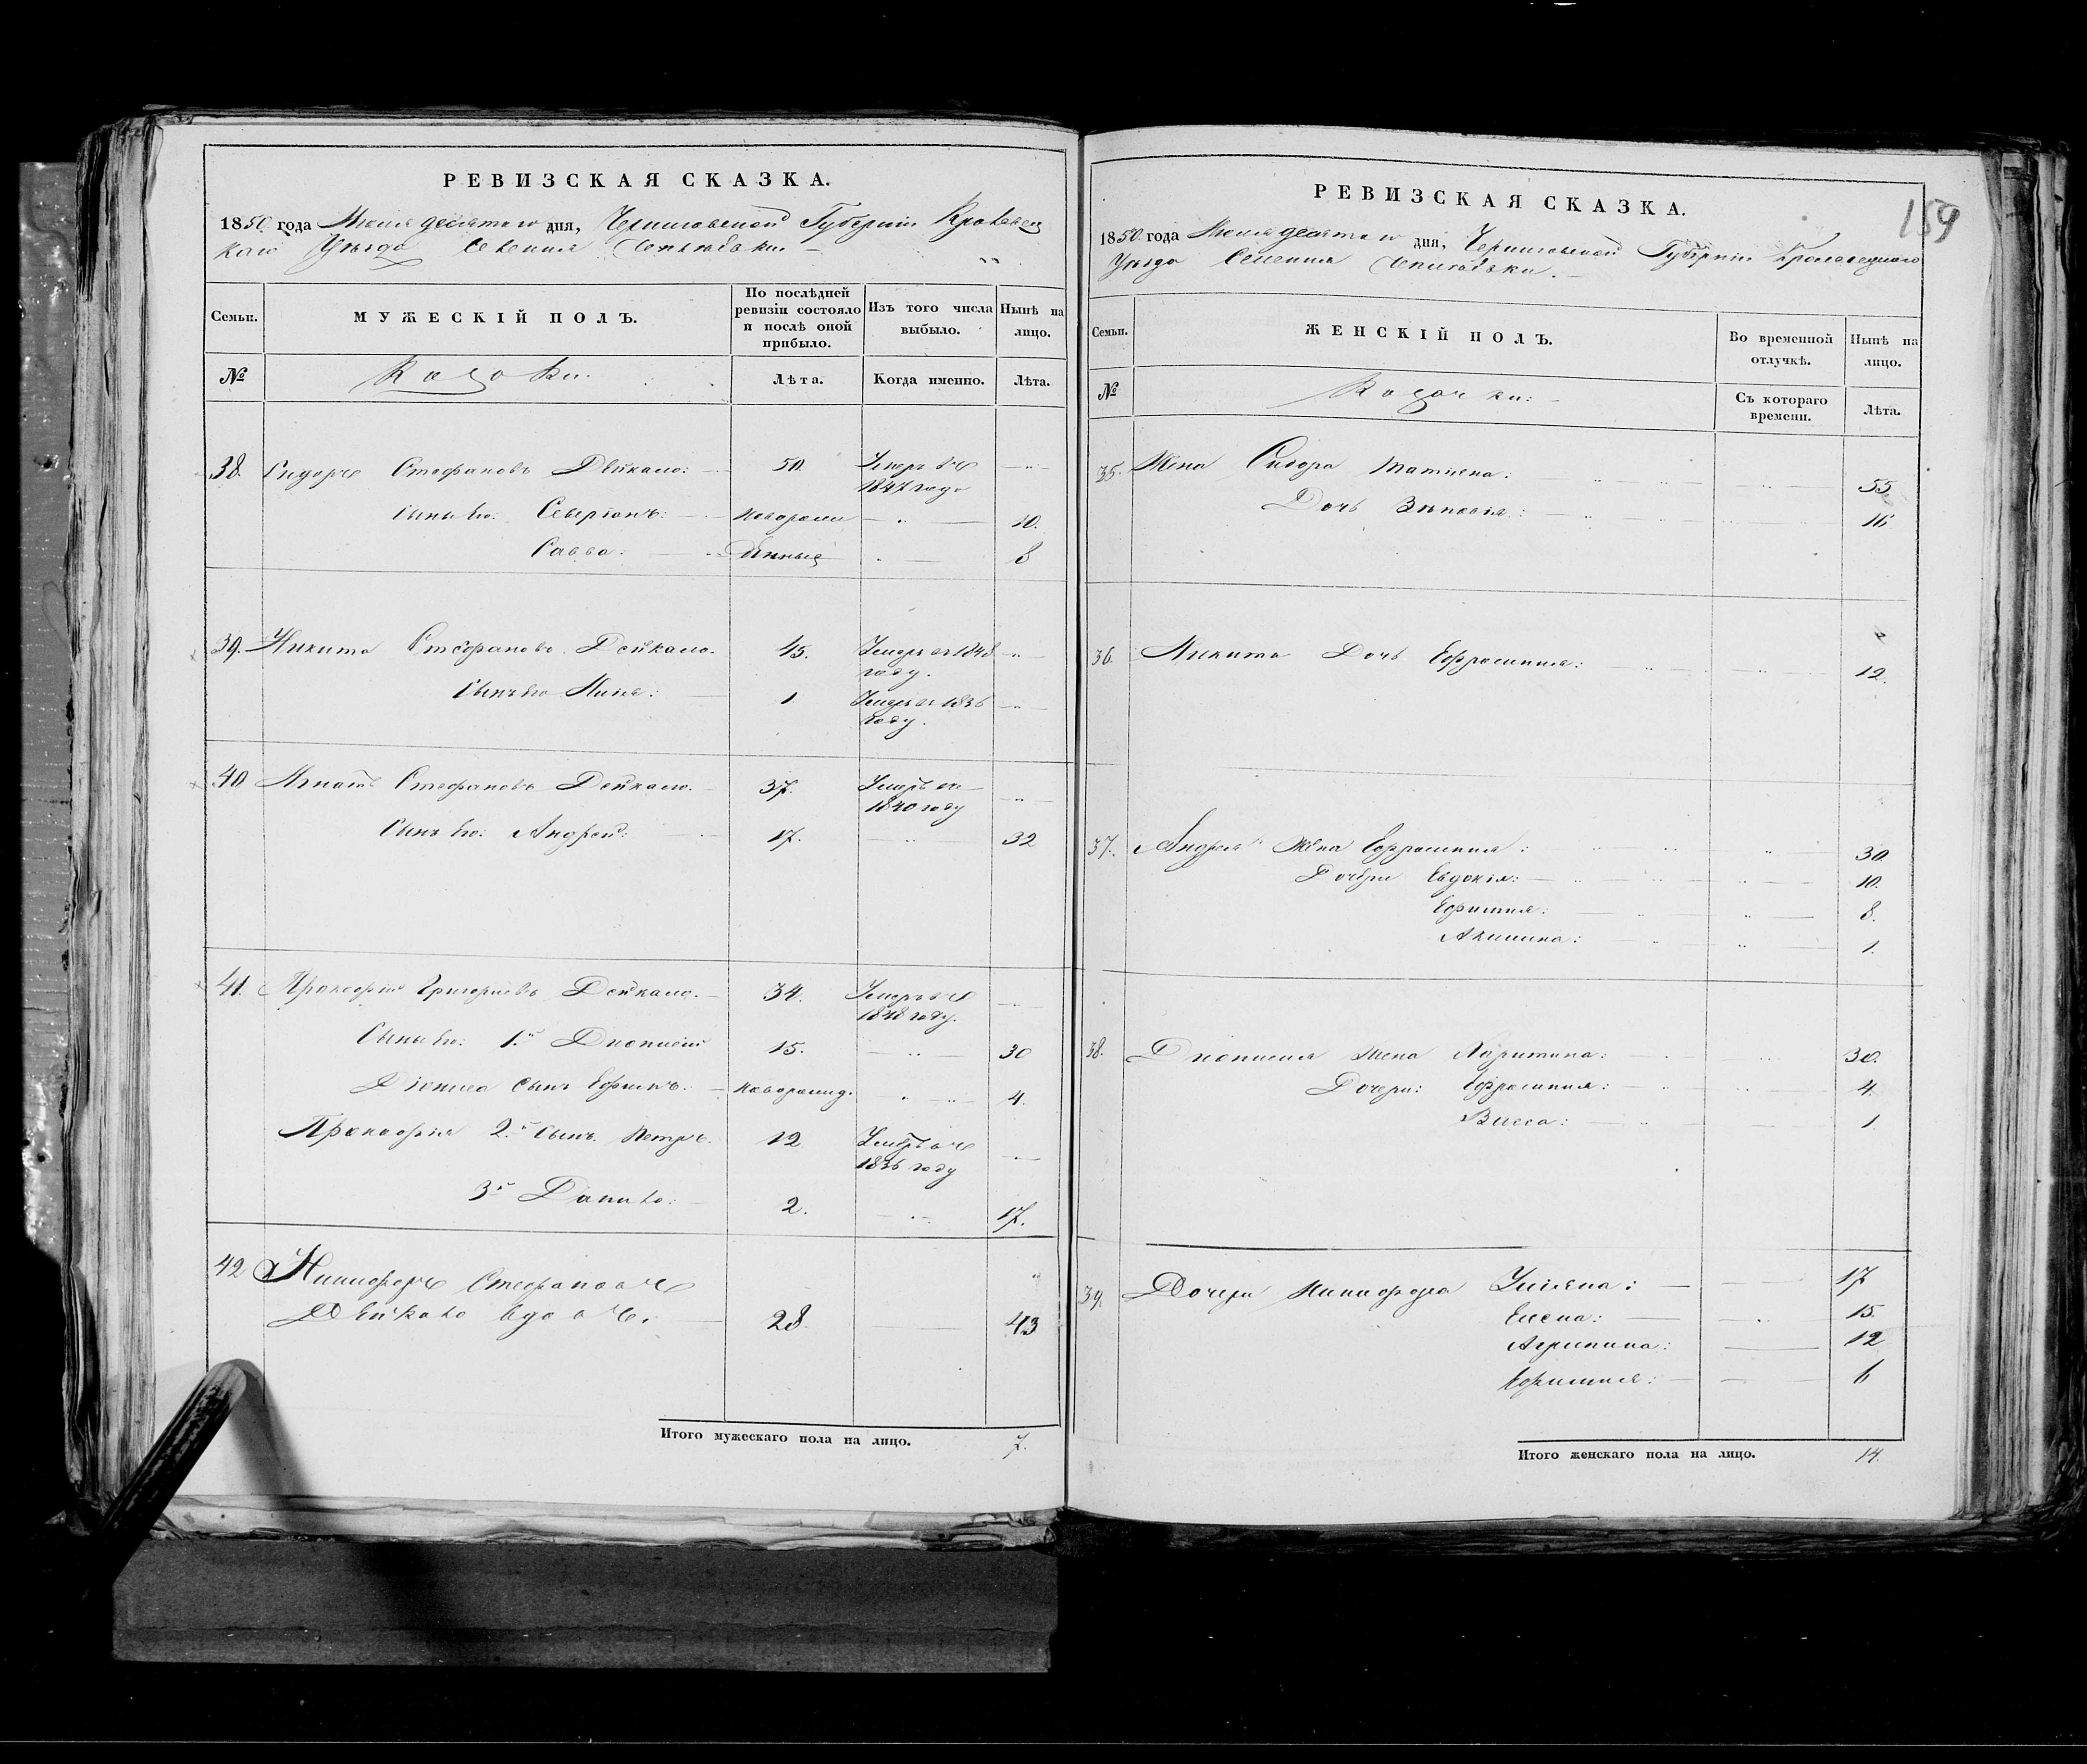 РЕВИЗСКАЯ СКАЗКА.
1850 года Июня десятого дня, Черниговской Губернии Кролевец
каго Уезда Селения
Семьи.
МУЖЕСКІЙ ПОЛЪ.
По послѣдней ревизіи состояло и послѣ оной прибыло.
Изъ того числа выбыло.
Нынѣ на лицо.
№ Козаки. Лѣта. Когда именно. Лѣта.
38. Сидоръ Стефановъ Дейкало: 50. Умеръ въ 1847 году
Сыны его: Северіонъ: новорож 10.
Савва: денные 8
39. Никита Стефановъ Дейкало. 45. Умеръ въ 1848 году.
Сынъ его Илия: 1 Умеръ въ 1836 году.
40 Игнатъ Стефановъ Дейкало. 37. Умеръ въ 1840 году
Сынъ его: Андрей: 17. 32
41. Прокофій Григориевъ Дейкало. 34. Умеръ въ 1848 году.
Сыны его: 1й Дионисий 15. 30
Діониса сынъ Ефимъ: новорожд. 4.
Прокофія 2й Сынъ Петръ. 12 Умеръ въ 1836 году
3й Данило: 2. 17.
42 Никифоръ Стефановъ
Дейкало вдовъ. 28. 43
Итого мужескаго пола на лицо. 7.
159
РЕВИЗСКАЯ СКАЗКА.
1850 года Июня десятого дня, Черниговской Губернии Кролевецкаго
Уезда Селения
Семьи.
ЖЕНСКІЙ ПОЛЪ.
Во временной отлучкѣ.
Нынѣ на лицо.
№ Козачки: Съ котораго времени. Лѣта.
35. Жена Сидора Татияна: 55
Дочь Зѣновія: 16
36. Никиты Дочь Ефросиния: 12.
37. Андрея Жена Ефросиния: 30
Дочери Евдокія: 10.
Ефимия: 8.
Акилина: 1.
38. Дионисия Жена Харитина: 30.
Дочери: Ефросиния: 4.
Васса: 1.
39. Дочери Никифора Улияна: 17
Елена: 15
Агрипина: 12
Ефимия: 6
Итого женскаго пола на лицо. 14.